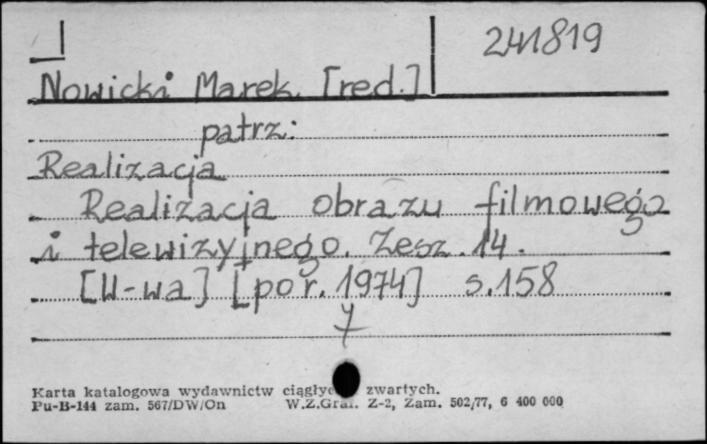 241819
Nowicki Marek. [red.]
patrz:
Realizacja
Realizacja obrazu filmowego
i telewizyjnego. Zesz. 14.
[W-wa] [por. 1974] s.158
Karta katalogowa wydawnictw zwartych.
Pu-B-144 zam. 567/DW/On W.Z.Graf. Z-2, Zam. 502/77, 6 400 000